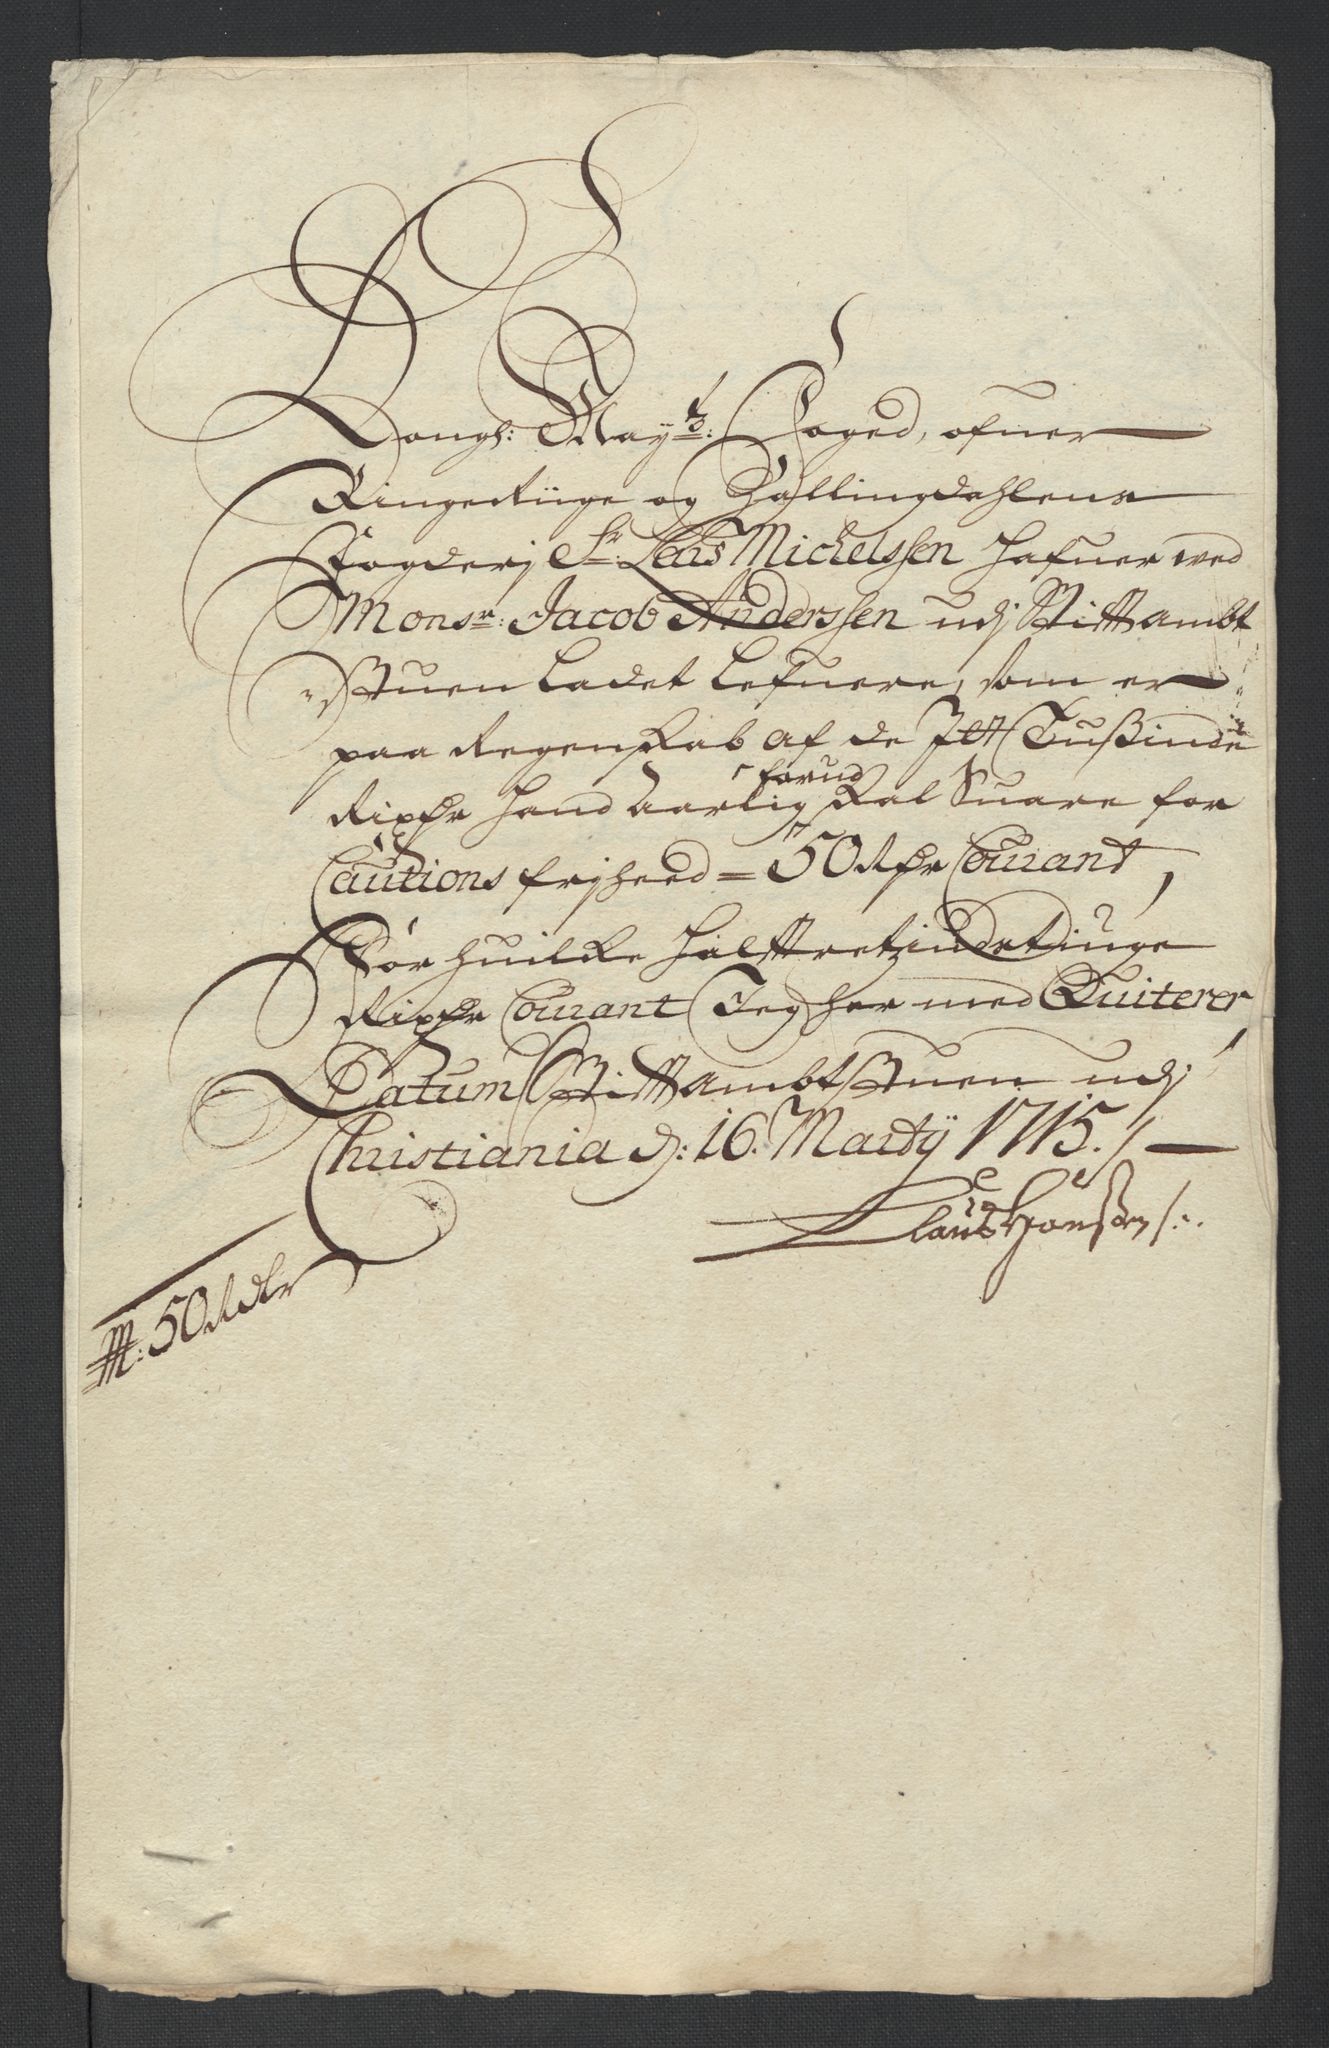 Kongl: Mayts: Foged, ofuer
Ringeriige og Hallingdahlens
Fogderj Sr: Lars Michelssen hafuer ved
Monsr: Jacob Anderssen udj Stifftambt
Stuen ladet lefuere, som er
paa Regenskab af de Et Tusinde
Rixdr hand aarlig forud skal Suare for
Cautions frjheed = 50 Rdr Courant,
For huilke halfftretzindetiuge
Rixdr Courant Jeg her med Quiterer
Datum Stifftambtstuen udj
Christiania d: 16. Martij 1715. /
Claus Hansen
50 Rdr